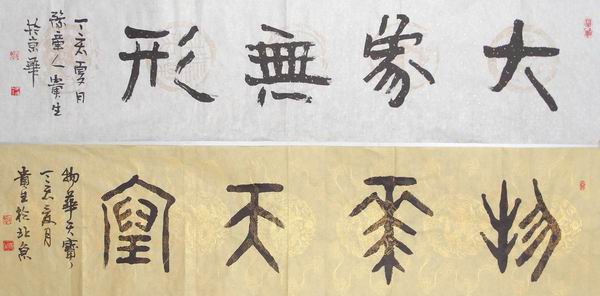 大象無形
丁亥夏月
豫章人貴生
於京華
物華天寶
物華天寶
丁亥夏月
貴生於北京